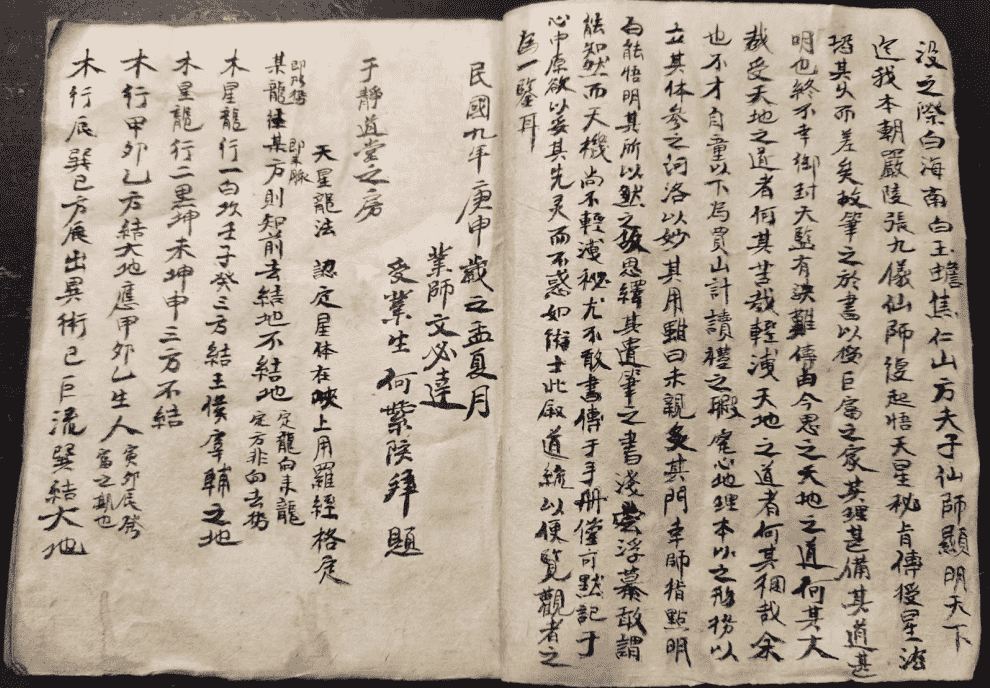 没之際白海南白玉蟾焦仁山方夫子仙師顯明天下
迄我本朝嚴陵張九儀仙師復起悟天星秘肯傳授星法
搭其火不差矣故筆之於書以授巨富之家其理甚備其道甚
明也終不幸御封大監有決難傳由今思之天地之道何其大
哉受天地之道者何其苦哉輕洩天地之道者何其稠哉余
也不才自童以下為買山計讀禮之暇寃心地理本以之形務以
立其体參之河洛以妙其用點曰未親炙其門幸師指點明
白能悟明其所以然之故思繹其遺筆之書淺嘗浮慕敢謂
能知然而天機尚不輕洩秘尤不敢書傳于手册僅可默記于
心中原欲以妥其先灵而不惑如術士此叙道統以便覽觀者之
為一鑒耳
民國九年庚申歲之孟夏月
業師文必達
受業生何紫陔拜題
于靜道堂之房
天星龍法 認定星体在峽上用羅經格定
即形勢 即来脉
某龍徃某方則知前去結地不結地 定龍向来龍 定方非向去勢
木星龍行一白坎壬子癸三方結王侯宰輔之地
木星龍行二黑坤未坤申三方不結
木行甲卯乙方結大地應甲卯乙生人 寅卯辰發 富之期也
木行辰巽巳方展出異術已巨流巽結大地